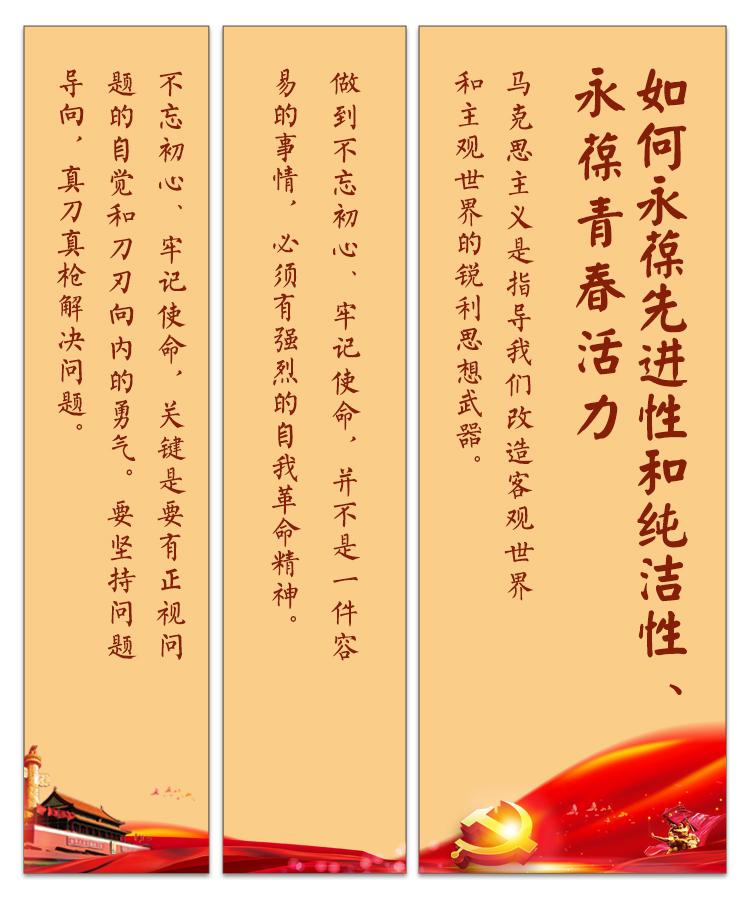 如何永葆先进性和纯洁性、
永葆青春活力
马克思主义是指导我们改造客观世界
和主观世界的锐利思想武器。
做到不忘初心、牢记使命，并不是一件容
易的事情，必须有强烈的自我革命精神。
不忘初心、牢记使命，关键是要有正视问
题的自觉和刀刃向内的勇气。要坚持问题
导向，真刀真枪解决问题。